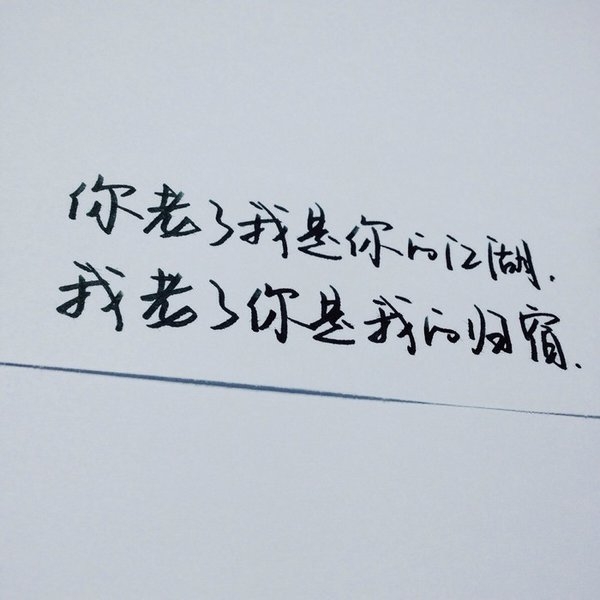 你老了我是你的江湖.
我老了你是我的归宿.